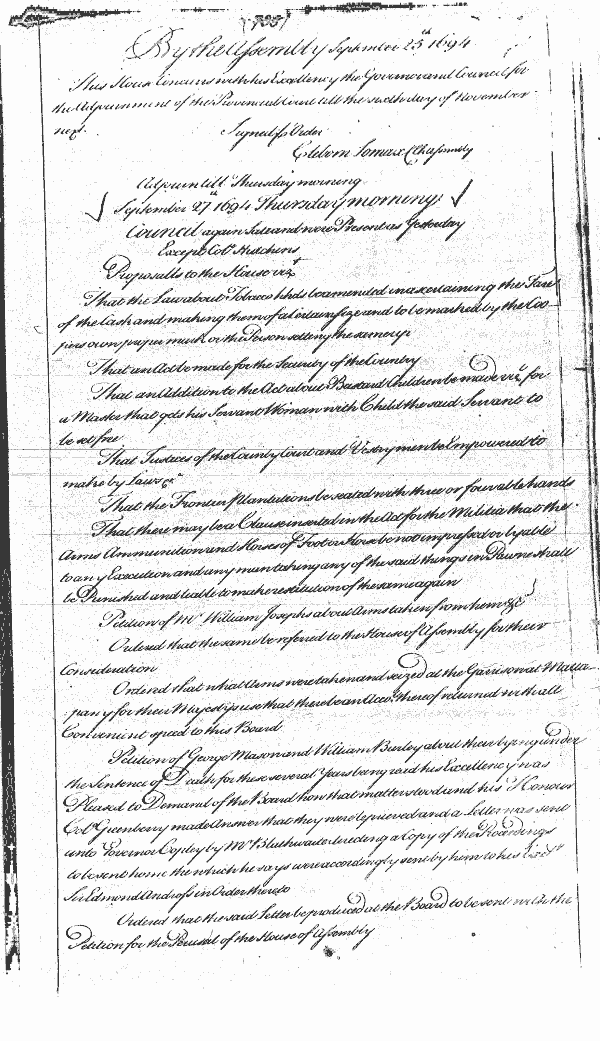 By the Assembly September 25th 1694
This House Concurs with his Excellency the Governor and Council for
the Adjournment of the Provincial Court till the sixth day of November
next.
Signed p Order
Cleborn Lomax Cl Assembly
Adjourn till Thursday morning
September 27th 1694 Thursday morning
Council again Sate and were Present as Yesterday
Except Colo Hutchins
Proposalls to the House vizt
That the Law about Tobacco hhds be amended in ascertaining the Tare
of the Cask and making them of a Certain size and to be marked by the Coo
pers own proper mark or the Person setting the same up
That an Act be made for the Security of the Country
That an Addition to the Act about Bastard Children be made vizt for
a Master that gets his Servant Woman with Child the said Servant to
be set free
That Justices of the County Court and Vestry men be Empowered to
make by Laws &ca
That the Frontier Plantations be seated with three or four able hands
That there may be a Clause inserted in the Act for the Militia that the
Arms Ammunition and Horses of Foot or Horse be not impressed or lyable
to any Execution and any men taking any of the said things in Pawne shall
be Punished and liable to make restitution of the same again
Petition of mr William Josephs about Arms taken from him &ca
Ordered that the same be referred to the House of Assembly for their
Consideration
Ordered that what Arms were taken and seized at the Garrison at Matta
pany for their Majestys use that there be an Acco. thereof returned with all
Convenient speed to this Board
Petition of George Mason and William Burley about their lying under
the Sentence of Death for these several Years being read his Excellency was
Pleased to Demand of the Board how that matter stood and his Honour
Colo Greenberry made Answer that they were Reprieved and a Letter was sent
unto Governor Copley by Mr Blathwaite directing a Copy of the Proceedings
to be sent home the which he says were accordingly sent by him to his Excelly
Sir Edmond Andross in Order thereto
Ordered that the said Letter be produced at the Board to be sent with the
Petition for the Perusal of the House of Assembly